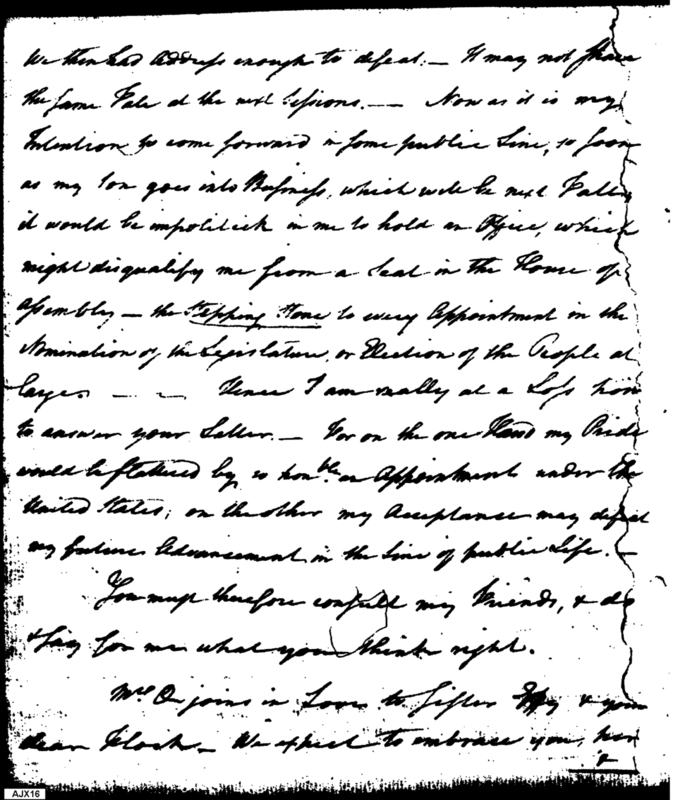 We then had Address enough to defeat. — It may not share
the same Fate at the next Sessions. — — Now as it is my
Intention to come forward in some public Line, so soon
as my Son goes into Business, which will be next Fall,
it would be impolitick in me to hold an Office, which
might disqualify me from a Seat in the House of
Assembly — the Stepping Stone to every Appointment in the
Nomination of the Legislature, or Election of the People at
large. — — Hence I am really at a Loss how
to answer your Letter. — For on the one Hand my Pride
would be flattered by so honble. an Appointment under the
United States; on the other my Acceptance may defeat
my future Advancement in the Line of public Life. —
You must therefore consult my Friends, & do
& say for me what you think right.
Mrs O joins in Love to Sister & your
dear Flock — We expect to embrace you, her
&
AJX16